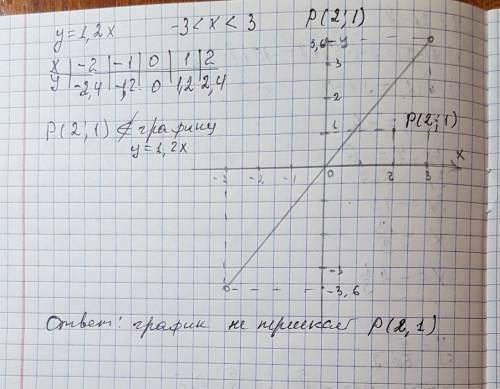 y=1,2x   -3<x<3   P(2;1)
x | -2 | -1 | 0 | 1 | 2
y | -2,4 | -1,2 | 0 | 1,2 | 2,4
P(2;1) ∉ графику
y=1,2x
3,6 y
3
2
1
P(2;1)
-3 -2 -1 0 2 3 x
-3
-3,6
Ответ: график не P(2,1)